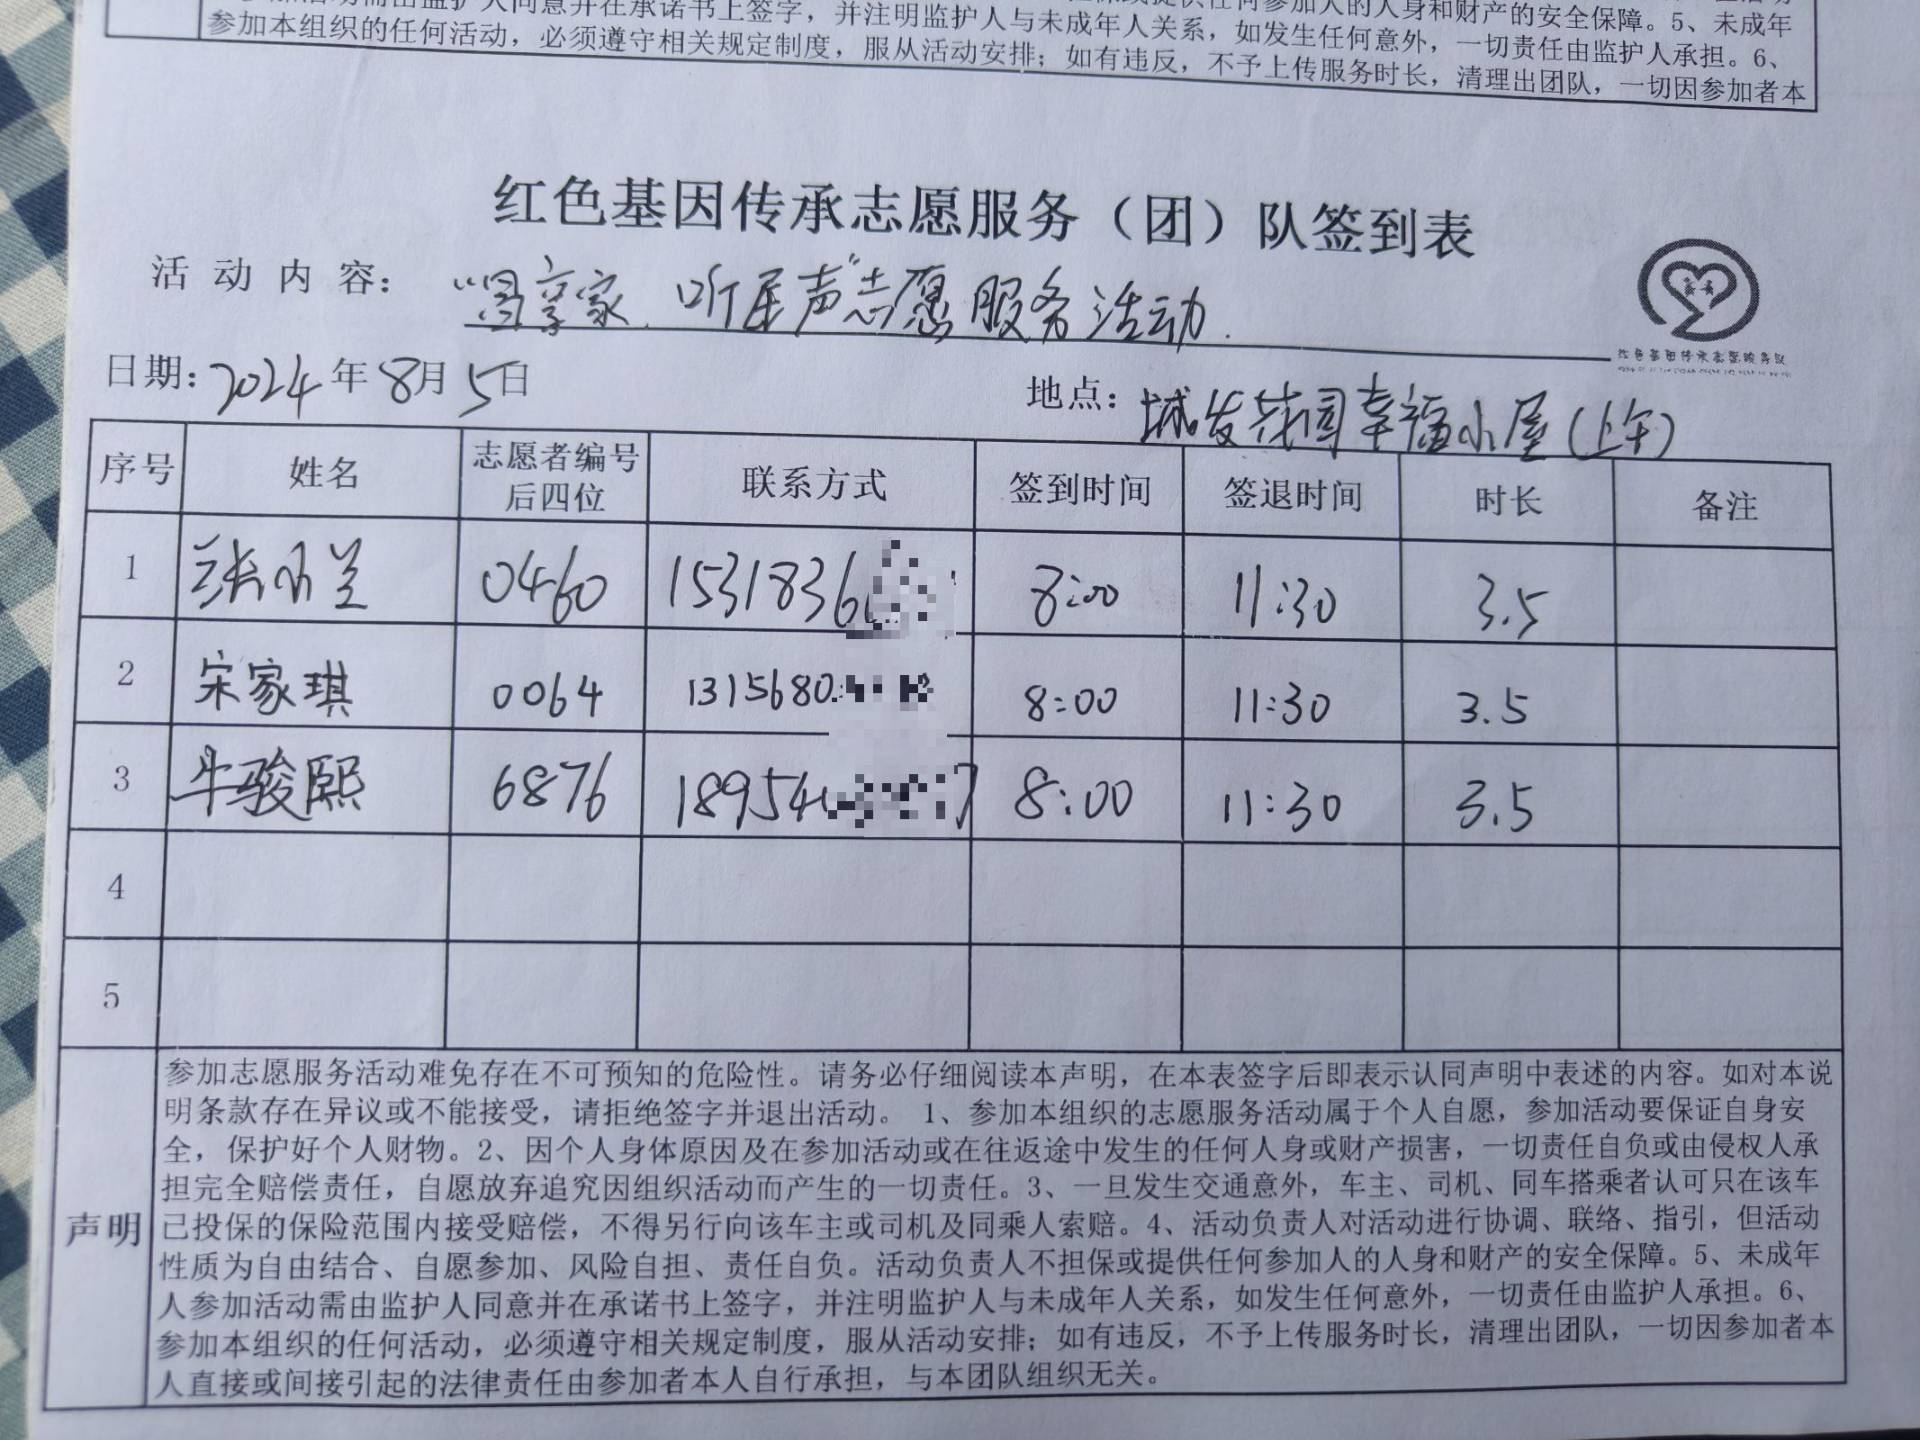 参加本组织的任何活动，必须遵守相关规定制度，服从活动安排；如有违反，不予上传服务时长，清理出团队，一切因参加者本
红色基因传承志愿服务（团）队签到表
活动内容：“唱享家、听星声”志愿服务活动.
日期：2024年8月5日 地点：城发花园幸福小屋（上午）
序号 姓名 志愿者编号后四位 联系方式 签到时间 签退时间 时长 备注
1 张小兰 0460 1531836 8:00 11:30 3.5
2 宋家琪 0064 1315680 8:00 11:30 3.5
3 牛骏熙 6876 18954 7 8:00 11:30 3.5
4
5
声明
参加志愿服务活动难免存在不可预知的危险性。请务必仔细阅读本声明，在本表签字后即表示认同声明中表述的内容。如对本说
明条款存在异议或不能接受，请拒绝签字并退出活动。 1、参加本组织的志愿服务活动属于个人自愿，参加活动要保证自身安
全，保护好个人财物。2、因个人身体原因及在参加活动或在往返途中发生的任何人身或财产损害，一切责任自负或由侵权人承
担完全赔偿责任，自愿放弃追究因组织活动而产生的一切责任。3、一旦发生交通意外，车主、司机、同车搭乘者认可只在该车
已投保的保险范围内接受赔偿，不得另行向该车主或司机及同乘人索赔。4、活动负责人对活动进行协调、联络、指引，但活动
性质为自由结合、自愿参加、风险自担、责任自负。活动负责人不担保或提供任何参加人的人身和财产的安全保障。5、未成年
人参加活动需由监护人同意并在承诺书上签字，并注明监护人与未成年人关系，如发生任何意外，一切责任由监护人承担。6、
参加本组织的任何活动，必须遵守相关规定制度，服从活动安排；如有违反，不予上传服务时长，清理出团队，一切因参加者本
人直接或间接引起的法律责任由参加者本人自行承担，与本团队组织无关。